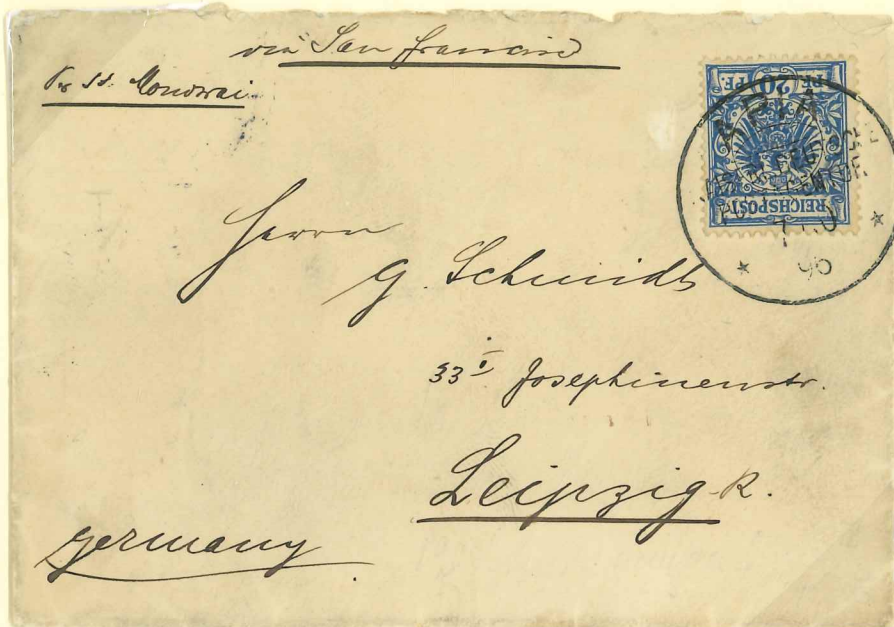 via San Francisco
Per St. Monowai
20 PF. PF.
REICHSPOST
APIA
96
Herrn
G. Schmidt
33 I Josephinenstr.
Leipzig-R.
Germany